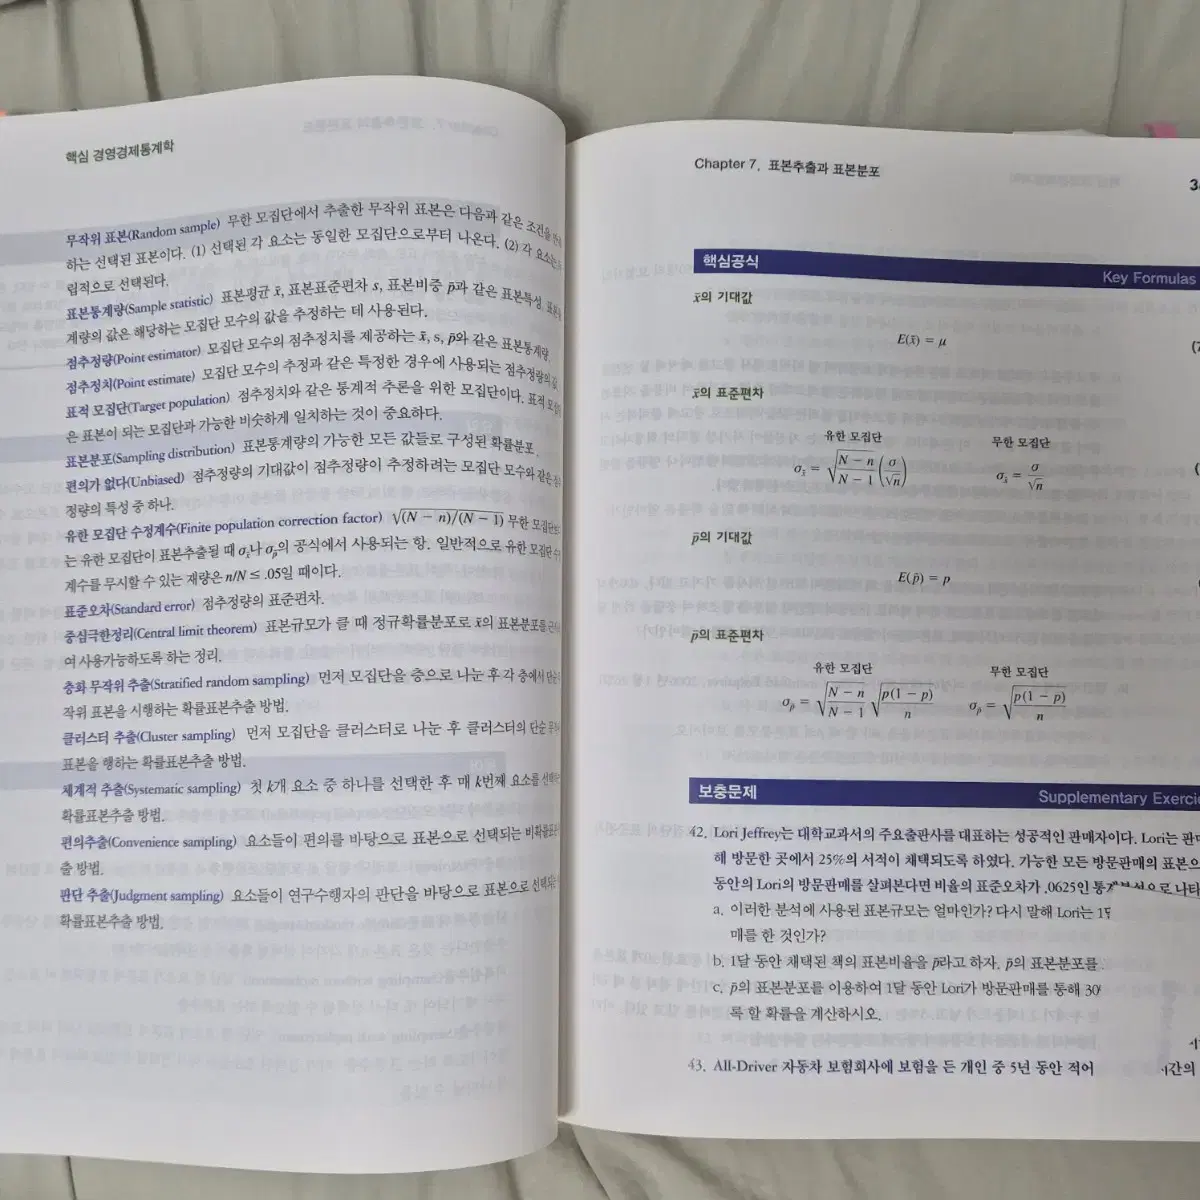 핵심 경영경제통계학
무작위 표본(Random sample) 무한 모집단에서 추출한 무작위 표본은 다음과 같은 조건을
하는 선택된 표본이다. (1) 선택된 각 요소는 동일한 모집단으로부터 나온다. (2) 각 요소는
립적으로 선택된다.
표본통계량(Sample statistic) 표본평균 x̄, 표본표준편차 s, 표본비중 p̄과 같은 표본특성. 표본
계량의 값은 해당하는 모집단 모수의 값을 추정하는 데 사용된다.
점추정량(Point estimator) 모집단 모수의 점추정치를 제공하는 x̄, s, p̄와 같은 표본통계량.
점추정치(Point estimate) 모집단 모수의 추정과 같은 특정한 경우에 사용되는 점추정량의 값.
표적 모집단(Target population) 점추정치와 같은 통계적 추론을 위한 모집단이다. 표적
은 표본이 되는 모집단과 가능한 비슷하게 일치하는 것이 중요하다.
표본분포(Sampling distribution) 표본통계량의 가능한 모든 값들로 구성된 확률분포.
편의가 없다(Unbiased) 점추정량의 기대값이 점추정량이 추정하려는 모집단 모수와 같은
정량의 특성 중 하나.
유한 모집단 수정계수(Finite population correction factor) √(N − n)/(N − 1) 무한 모집단
는 유한 모집단이 표본추출될 때 σx̄나 σp̄의 공식에서 사용되는 항. 일반적으로 유한 모집단
계수를 무시할 수 있는 재량은 n/N ≤ .05일 때이다.
표준오차(Standard error) 점추정량의 표준편차.
중심극한정리(Central limit theorem) 표본규모가 클 때 정규확률분포로 x̄의 표본분포를
여 사용가능하도록 하는 정리.
층화 무작위 추출(Stratified random sampling) 먼저 모집단을 층으로 나눈 후 각 층에서
작위 표본을 시행하는 확률표본추출 방법.
클러스터 추출(Cluster sampling) 먼저 모집단을 클러스터로 나눈 후 클러스터의 단순
표본을 행하는 확률표본추출 방법.
체계적 추출(Systematic sampling) 첫 k개 요소 중 하나를 선택한 후 매 k번째 요소를
확률표본추출 방법.
편의추출(Convenience sampling) 요소들이 편의를 바탕으로 표본으로 선택되는 비확률표본
출 방법.
판단 추출(Judgment sampling) 요소들이 연구수행자의 판단을 바탕으로 표본으로 선택되는
확률표본추출 방법.
Chapter 7. 표본추출과 표본분포
핵심공식 Key Formulas
x̄의 기대값
E(x̄) = μ
x̄의 표준편차
유한 모집단 무한 모집단
σx̄ = √(N − n)/(N − 1) (σ/√n) σx̄ = σ/√n
p̄의 기대값
E(p̄) = p
p̄의 표준편차
유한 모집단 무한 모집단
σp̄ = √(N − n)/(N − 1) √p(1 − p)/n σp̄ = √p(1 − p)/n
보충문제 Supplementary
42. Lori Jeffrey는 대학교과서의 주요출판사를 대표하는 성공적인 판매자이다. Lori는
해 방문한 곳에서 25%의 서적이 채택되도록 하였다. 가능한 모든 방문판매의 표본으
동안의 Lori의 방문판매를 살펴본다면 비율의 표준오차가 .0625인
a. 이러한 분석에 사용된 표본규모는 얼마인가? 다시 말해 Lori는
매를 한 것인가?
b. 1달 동안 채택된 책의 표본비율을 p̄라고 하자. p̄의 표본분포를
c. p̄의 표본분포를 이용하여 1달 동안 Lori가 방문판매를 통해
록 할 확률을 계산하시오.
43. All-Driver 자동차 보험회사에 보험을 든 개인 중 5년 동안 적어